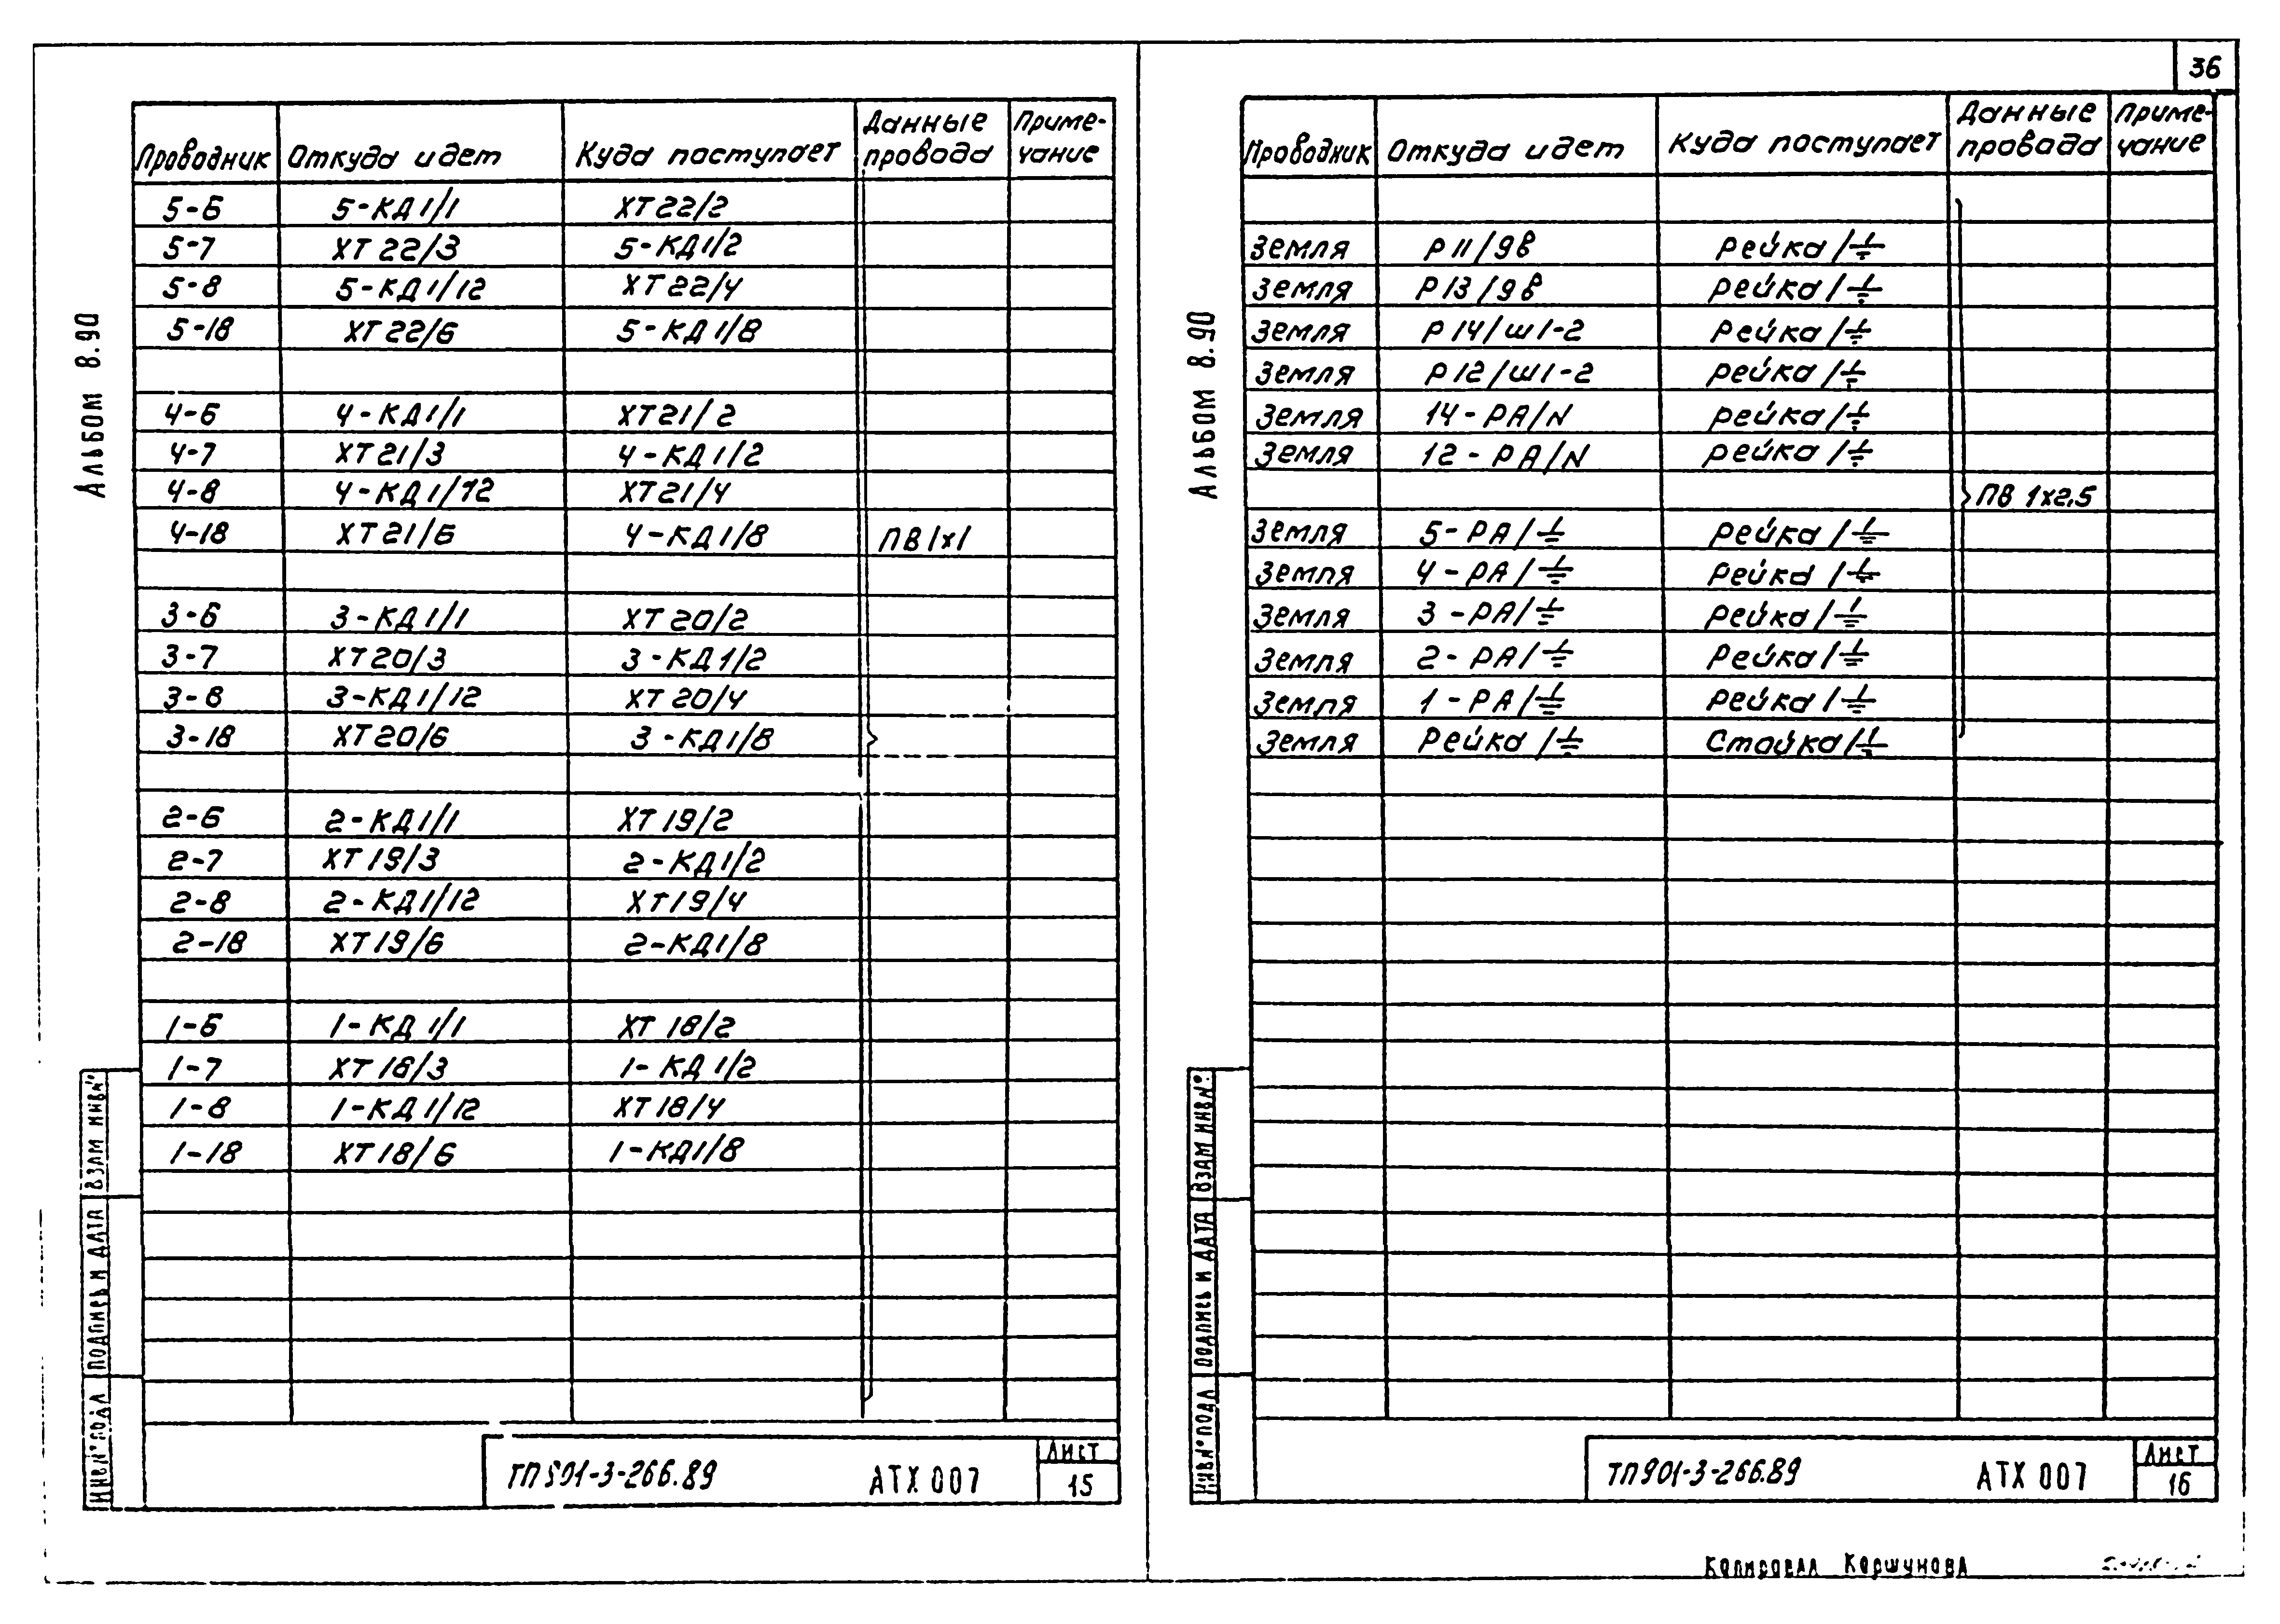 36
Альбом 8.90
Проводник Откуда идет Куда поступает Данные провода Приме-чание
5-6 5-КД1/1 ХТ22/2
5-7 ХТ22/3 5-КД1/2
5-8 5-КД1/12 ХТ22/4
5-18 ХТ22/6 5-КД1/8
4-6 4-КД1/1 ХТ21/2
4-7 ХТ21/3 4-КД1/2
4-8 4-КД1/12 ХТ21/4
4-18 ХТ21/6 4-КД1/8 ПВ1х1
3-6 3-КД1/1 ХТ20/2
3-7 ХТ20/3 3-КД1/2
3-8 3-КД1/12 ХТ20/4
3-18 ХТ20/6 3-КД1/8
2-6 2-КД1/1 ХТ19/2
2-7 ХТ19/3 2-КД1/2
2-8 2-КД1/12 ХТ19/4
2-18 ХТ19/6 2-КД1/8
1-6 1-КД1/1 ХТ18/2
1-7 ХТ18/3 1-КД1/2
1-8 1-КД1/12 ХТ18/4
1-18 ХТ18/6 1-КД1/8
ИНВ№ПОДЛ ПОДПИСЬ И ДАТА ВЗАМ ИНВ№
ТП901-3-266.89 АТХ 007 Лист 15
Альбом 8.90
Проводник Откуда идет Куда поступает Данные провода Приме-чание
Земля Р11/9в Рейка/⏚
Земля Р13/9в Рейка/⏚
Земля Р14/Ш1-2 Рейка/⏚
Земля Р12/Ш1-2 Рейка/⏚
Земля 14-РА/N Рейка/⏚
Земля 12-РА/N Рейка/⏚
ПВ 1х2,5
Земля 5-РА/⏚ Рейка/⏚
Земля 4-РА/⏚ Рейка/⏚
Земля 3-РА/⏚ Рейка/⏚
Земля 2-РА/⏚ Рейка/⏚
Земля 1-РА/⏚ Рейка/⏚
Земля Рейка/⏚ Стойка/⏚
ИНВ№ПОДЛ ПОДПИСЬ И ДАТА ВЗАМ ИНВ№
ТП901-3-266.89 АТХ 007 Лист 16
Копировал Коршунова